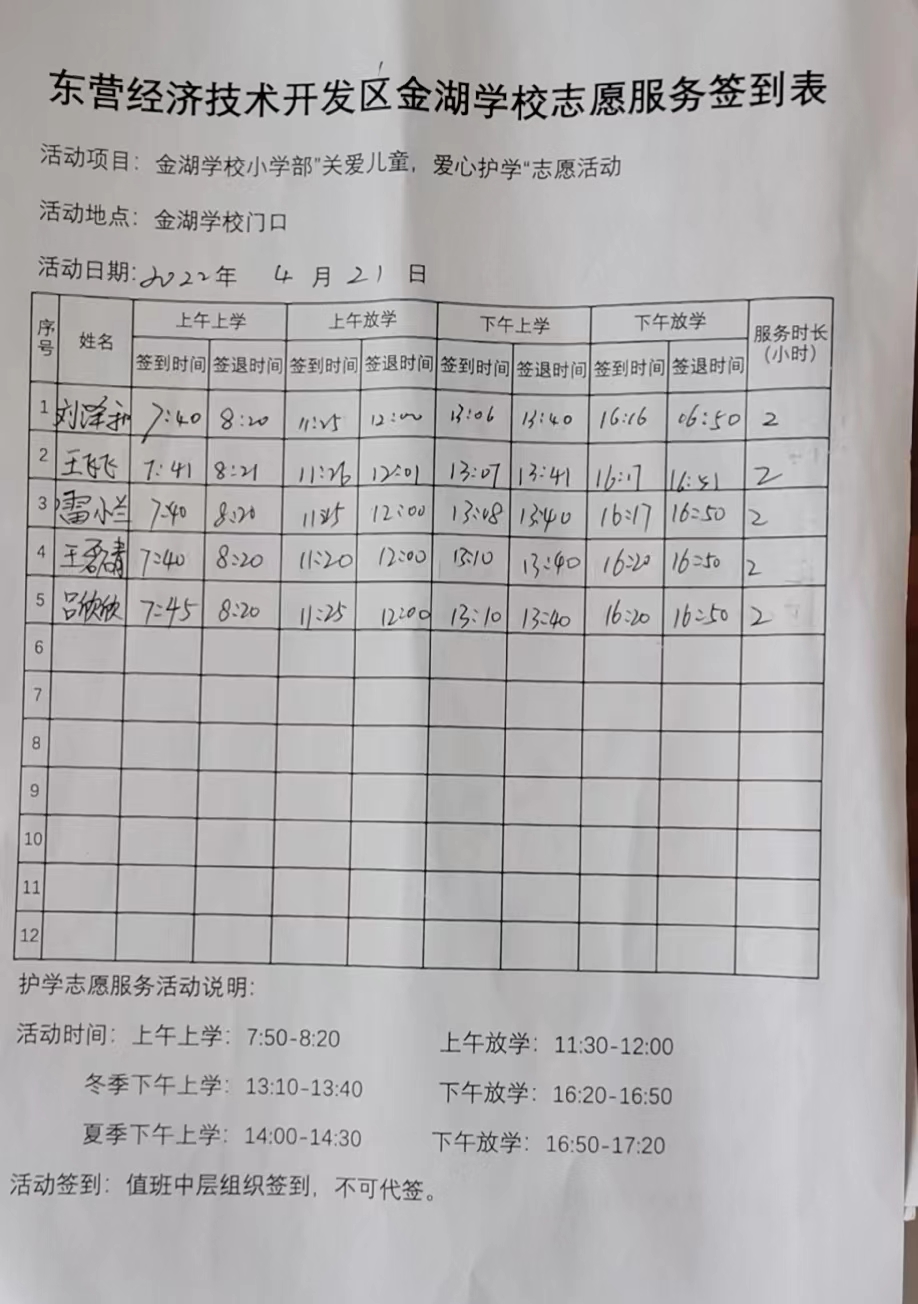 东营经济技术开发区金湖学校志愿服务签到表
活动项目：金湖学校小学部"关爱儿童，爱心护学"志愿活动
活动地点：金湖学校门口
活动日期：2022年 4 月 21 日
序号 姓名 上午上学 上午放学 下午上学 下午放学 服务时长（小时）
签到时间 签退时间 签到时间 签退时间 签到时间 签退时间 签到时间 签退时间
1 刘泽 7:40 8:20 11:25 12:00 13:06 13:40 16:16 16:50 2
2 王飞飞 7:41 8:21 11:26 12:01 13:07 13:41 16:17 16:51 2
3 雷小兰 7:40 8:20 11:25 12:00 13:08 13:40 16:17 16:50 2
4 王 7:40 8:20 11:20 12:00 13:10 13:40 16:20 16:50 2
5 吕欣欣 7:45 8:20 11:25 12:00 13:10 13:40 16:20 16:50 2
6
7
8
9
10
11
12
护学志愿服务活动说明：
活动时间：上午上学：7:50-8:20 上午放学：11:30-12:00
冬季下午上学：13:10-13:40 下午放学：16:20-16:50
夏季下午上学：14:00-14:30 下午放学：16:50-17:20
活动签到：值班中层组织签到，不可代签。